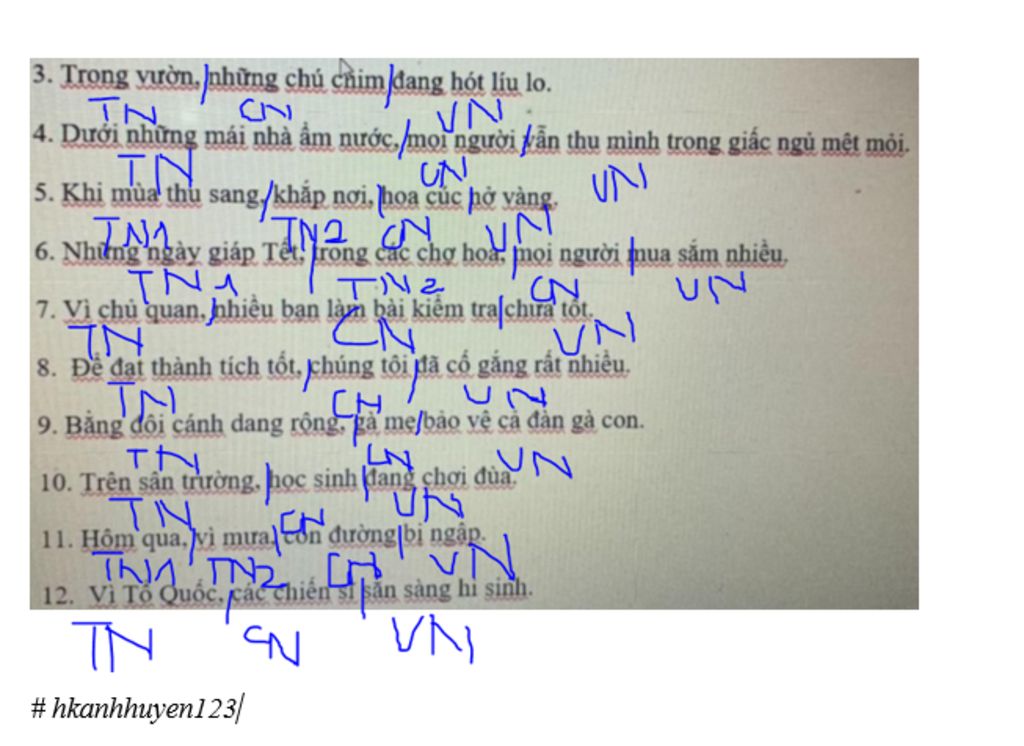 3. Trong vườn, những chú chim đang hót líu lo.
TN CN VN
4. Dưới những mái nhà ẩm nước, mọi người vẫn thu mình trong giấc ngủ mệt mỏi.
TN CN VN
5. Khi mùa thu sang, khắp nơi, hoa cúc nở vàng.
TN1 TN2 CN VN
6. Những ngày giáp Tết, trong các chợ hoa, mọi người mua sắm nhiều.
TN1 TN2 CN VN
7. Vì chủ quan, nhiều bạn làm bài kiểm tra chưa tốt.
TN CN VN
8. Để đạt thành tích tốt, chúng tôi đã cố gắng rất nhiều.
TN CN VN
9. Bằng đôi cánh dang rộng, gà mẹ bảo vệ cả đàn gà con.
TN CN VN
10. Trên sân trường, học sinh đang chơi đùa.
TN CN VN
11. Hôm qua, vì mưa, con đường bị ngập.
TN1 TN2 CN VN
12. Vì Tổ Quốc, các chiến sĩ sẵn sàng hi sinh.
TN CN VN
# hkanhhuyen123